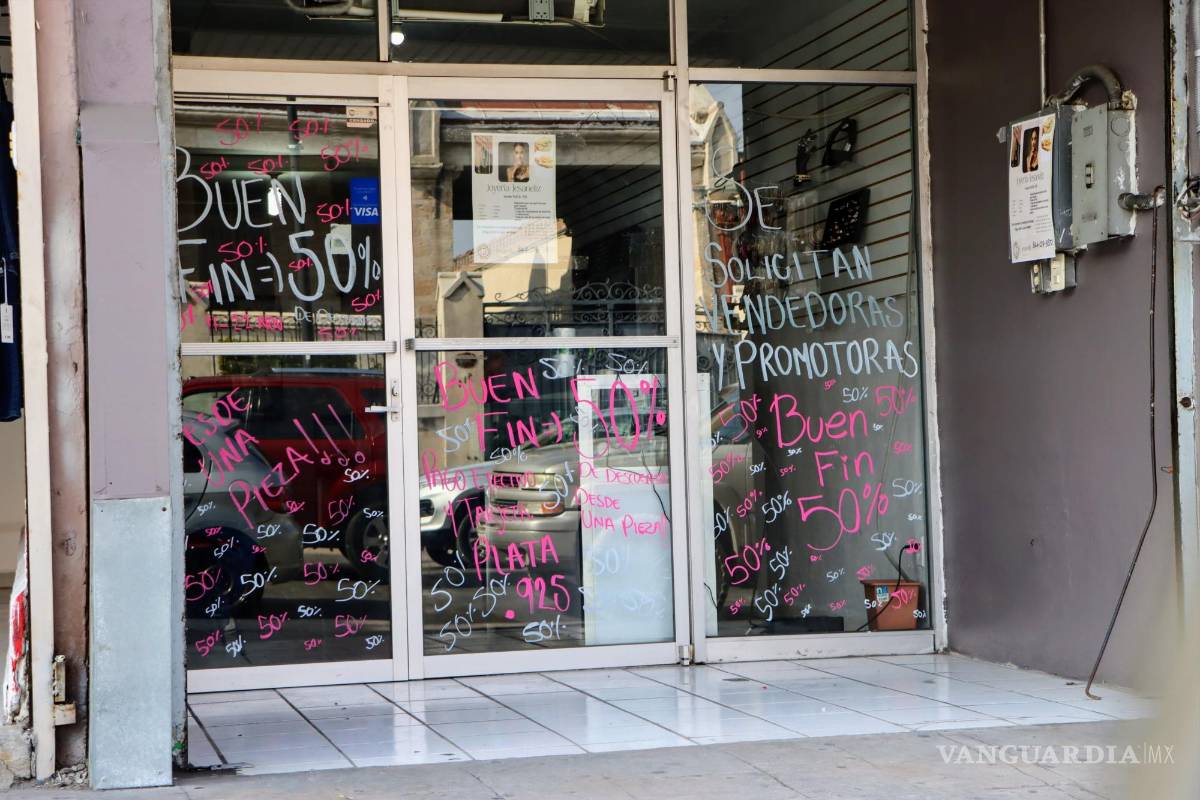 50%
50%
50%
50%
50%
CERRADO
BUEN
50%
VISA
50%
FIN=) 50%
50%
50%
DESDE
UNA
PIEZA!!!
50%
50%
50%
50%
50%
50%
50%
50%
50%
50%
50%
50%
Joyería Jesaneliz
BUEN 50% 50%
FIN=) 50%
50%
50%
PAGO EFECTIVO
Y TARJETA
50%
DE DESCUENTO
DESDE
UNA PIEZA!
PLATA
.925
50%
50%
50%
50%
50%
SE
SOLICITAN
VENDEDORAS
Y PROMOTORAS
50%
50%
50%
50%
Buen
Fin
50%
50%
50%
50%
50%
50%
50%
50%
50%
50%
VANGUARDIA|MX